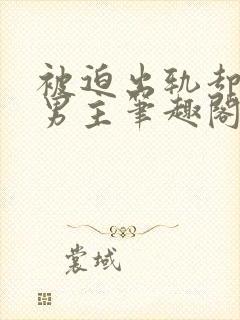 被迫出轨却
男主笔趣阁
裳域